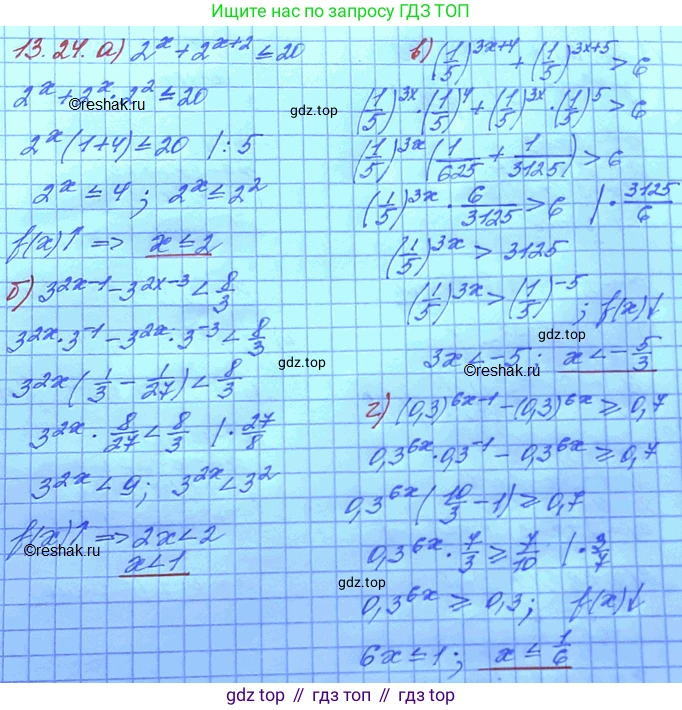 Ищите нас по запросу ГДЗ ТОП
13.24. а) 2^x + 2^{x+2} ≤ 20
2^x + 2^x · 2^2 ≤ 20
©reshak.ru
2^x (1+4) ≤ 20 | : 5
2^x ≤ 4 ; 2^x ≤ 2^2
f(x)↑ => x ≤ 2
б) 3^{2x-1} - 3^{2x-3} < 8/3
3^{2x} · 3^{-1} - 3^{2x} · 3^{-3} < 8/3
3^{2x} (1/3 - 1/27) < 8/3
3^{2x} · 8/27 < 8/3 | · 27/8
3^{2x} < 9; 3^{2x} < 3^2
f(x)↑ => 2x < 2
©reshak.ru
x < 1
в) (1/5)^{3x+4} + (1/5)^{3x+5} > 6
gdz.top
(1/5)^{3x} · (1/5)^4 + (1/5)^{3x} · (1/5)^5 > 6
(1/5)^{3x} (1/625 + 1/3125) > 6
(1/5)^{3x} · 6/3125 > 6 | · 3125/6
(1/5)^{3x} > 3125
(1/5)^{3x} > (1/5)^{-5} ; f(x)↓
gdz.top
gdz.top
3x < -5 ; x < -5/3
©reshak.ru
г) (0,3)^{6x-1} - (0,3)^{6x} ≥ 0,7
0,3^{6x} · 0,3^{-1} - 0,3^{6x} ≥ 0,7
0,3^{6x} (10/3 - 1) ≥ 0,7
0,3^{6x} · 7/3 ≥ 7/10 | · 3/7
gdz.top
0,3^{6x} ≥ 0,3; f(x)↓
6x ≤ 1 ; x ≤ 1/6
gdz.top // гдз.топ // gdz.top